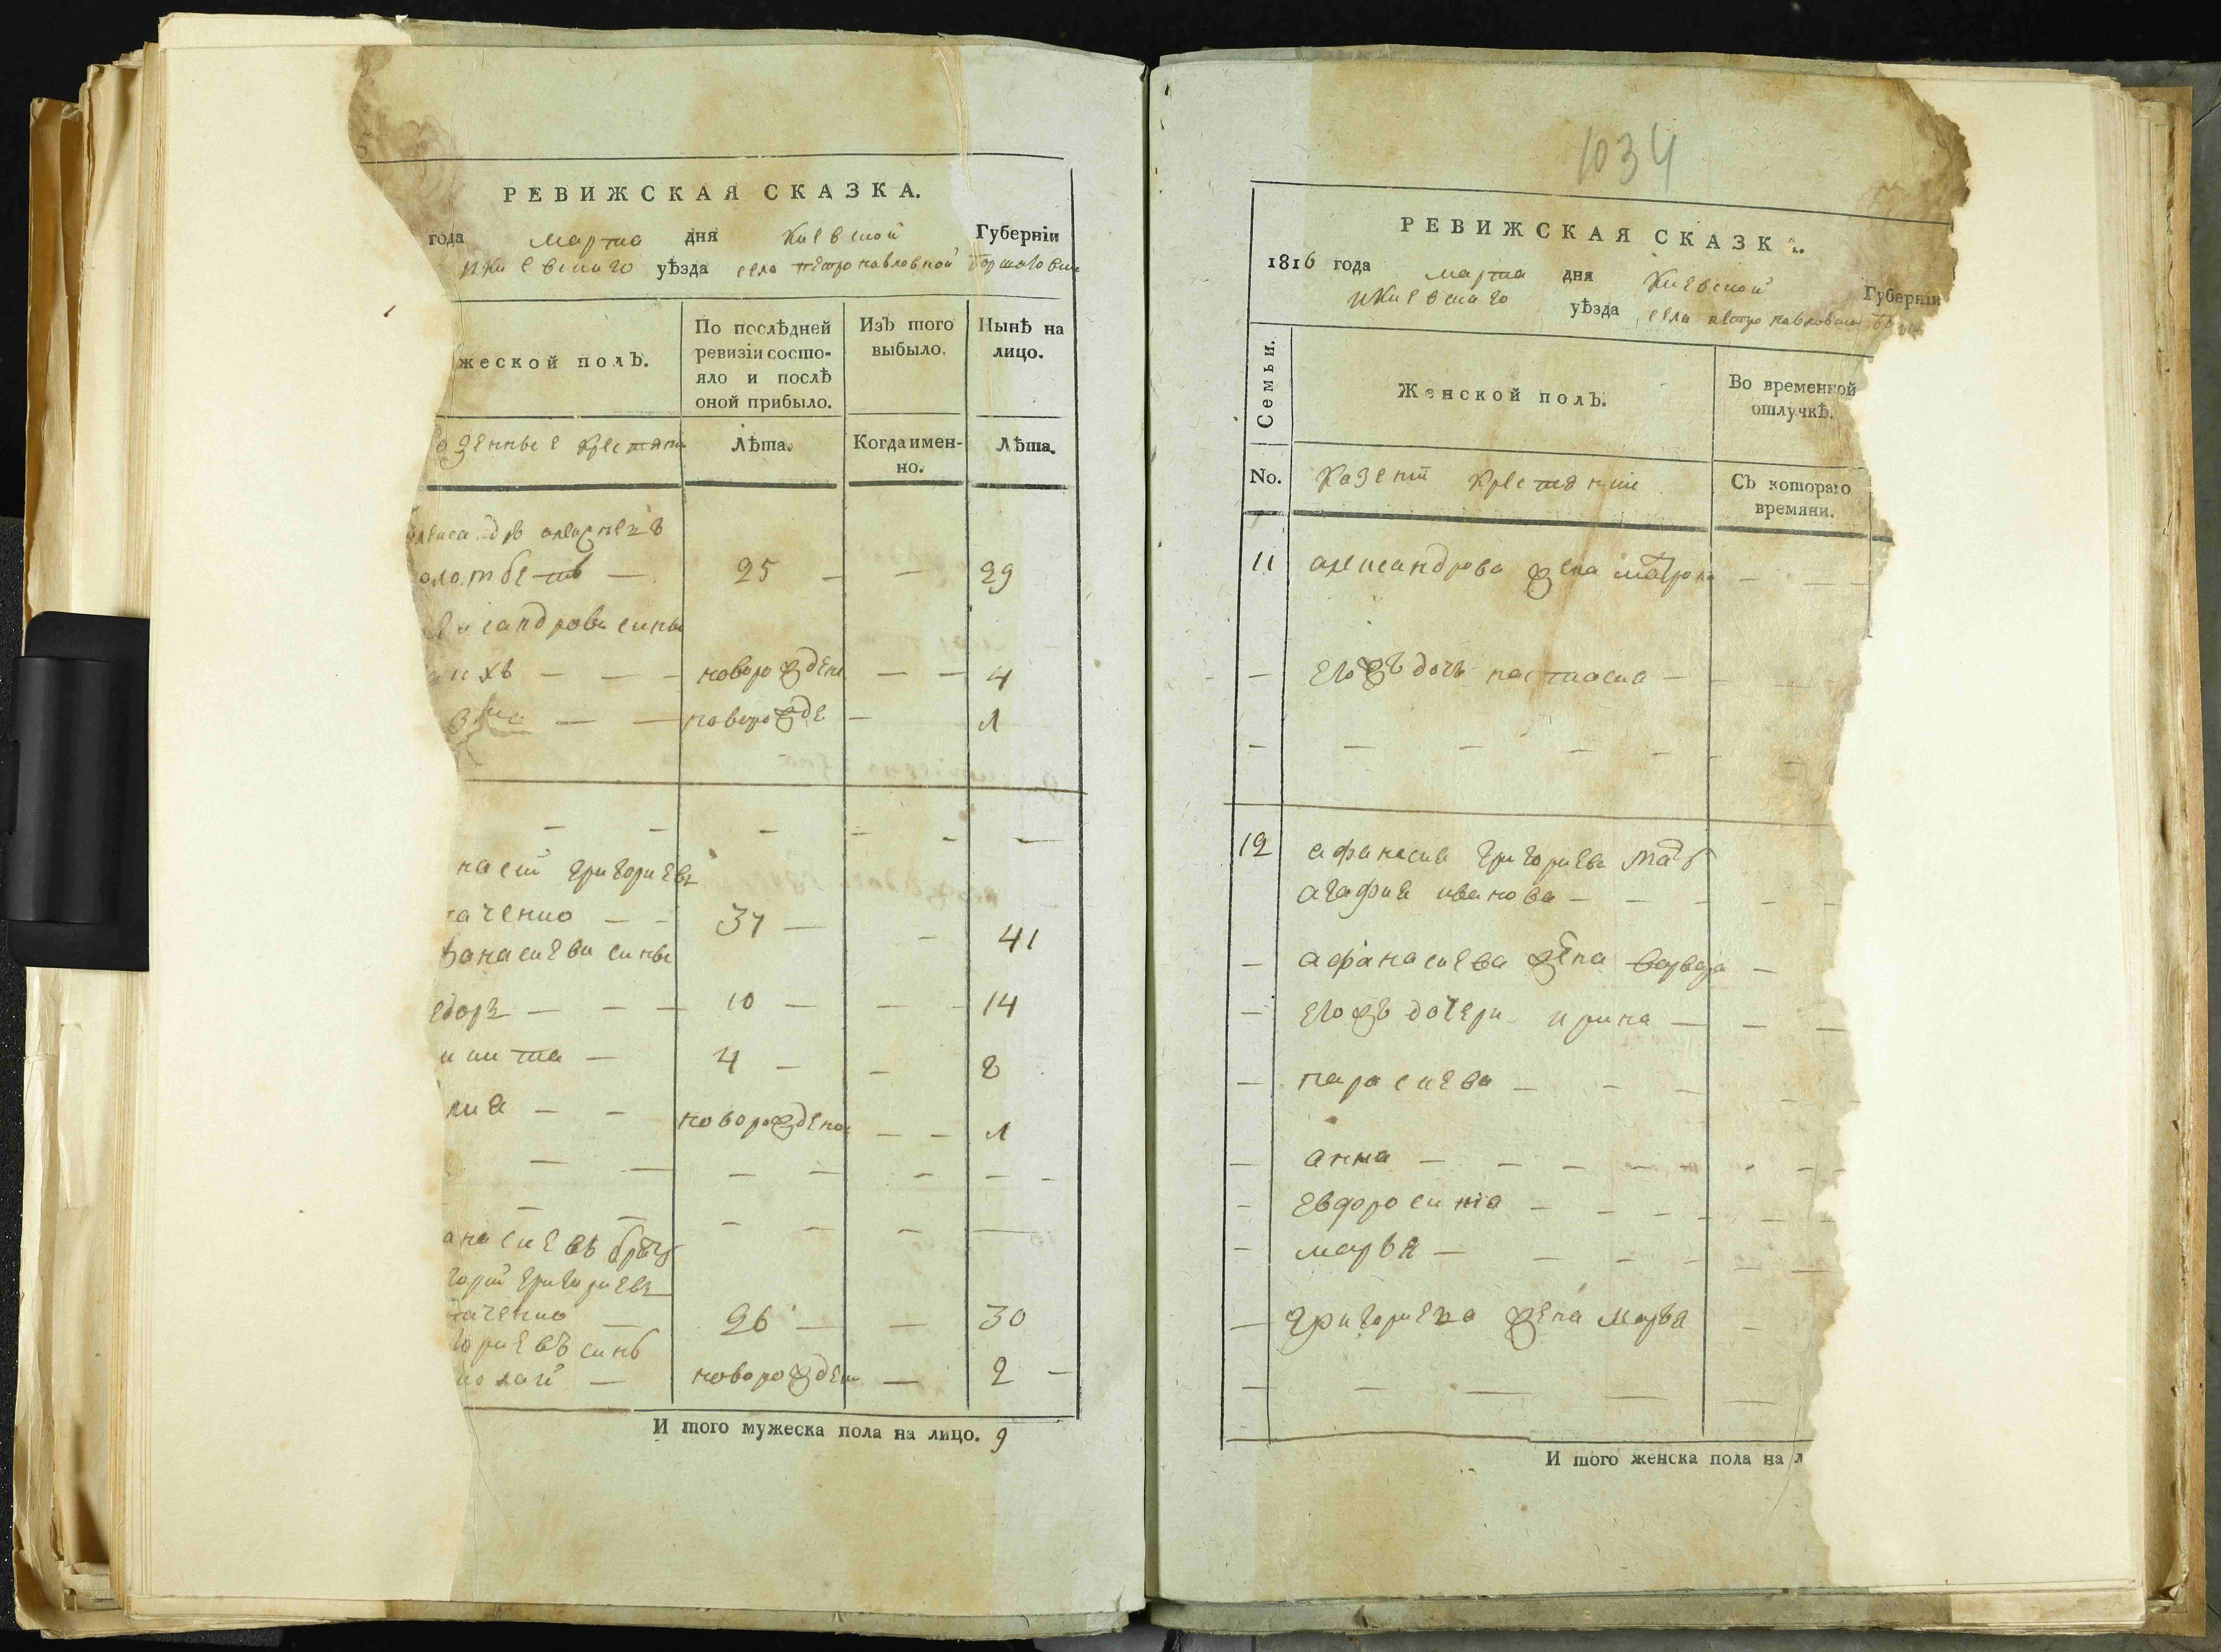 РЕВИЖСКАЯ СКАЗКА.
года марта дня Киевской Губернїи
И Киевскаго уѣзда села петропавловской борщаговки
жеской полЪ.
По послѣдней ревизїи состояло и послѣ оной прибыло.
ИзЪ того выбыло.
Нынѣ на лицо.
азенные крестяни
Лѣта.
Когда именно.
Лѣта.
25 — — 29
лександрови сины
новорожден — — 4
новорожде — 1
насий григориевъ
аченко — — 37 — — 41
фанасиеви сины
едоръ — — — 10 — — 14
икита — 4 — — 8
лия — — новорожденой — — 1
анасиевъ братъ
горий григориевъ
аченко — 26 — — 30
гориевъ синъ
колай — новорожден — 2 —
И того мужеска пола на лицо. 9
1034
РЕВИЖСКАЯ СКАЗКА.
1816 года марта дня Киевской Губернїи
И Киевскаго уѣзда села петропавловской
Семьи.
Женской полЪ.
Во временной отлучкѣ.
No.
Казений крестянки
СЪ котораго времяни.
11 александрова жена матрона — —
— егожъ дочъ настасия —
12 афанасия григориева мать
агафия иванова —
— афанасиева жена варвара —
— егожъ дочери ирина —
— параскева —
— анна —
— евфросинїа —
— марья —
— григориева жена марья —
И того женска пола на л